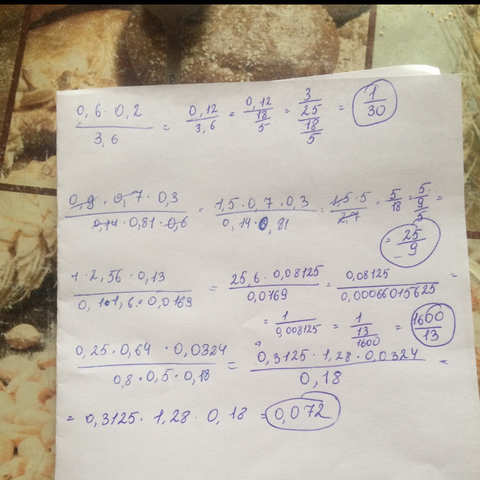 0,6·0,2/3,6 = 0,12/3,6 = 0,12/(18/5) = (3/25)/(18/5) = 1/30
0,9·0,7·0,3/0,14·0,81·0,6 = 1,5·0,7·0,3/0,14·0,81 = 1,5·5/2,7 = 5/18 = 5/(9/5) =
= 25/9
1·2,56·0,13/0,1·1,6·0,0169 = 25,6·0,08125/0,0169 = 0,08125/0,00066015625 =
= 1/0,008125 = 1/(13/1600) = 1600/13
0,25·0,64·0,0324/0,8·0,5·0,18 = 0,3125·1,28·0,0324/0,18 =
= 0,3125·1,28·0,18 = 0,072